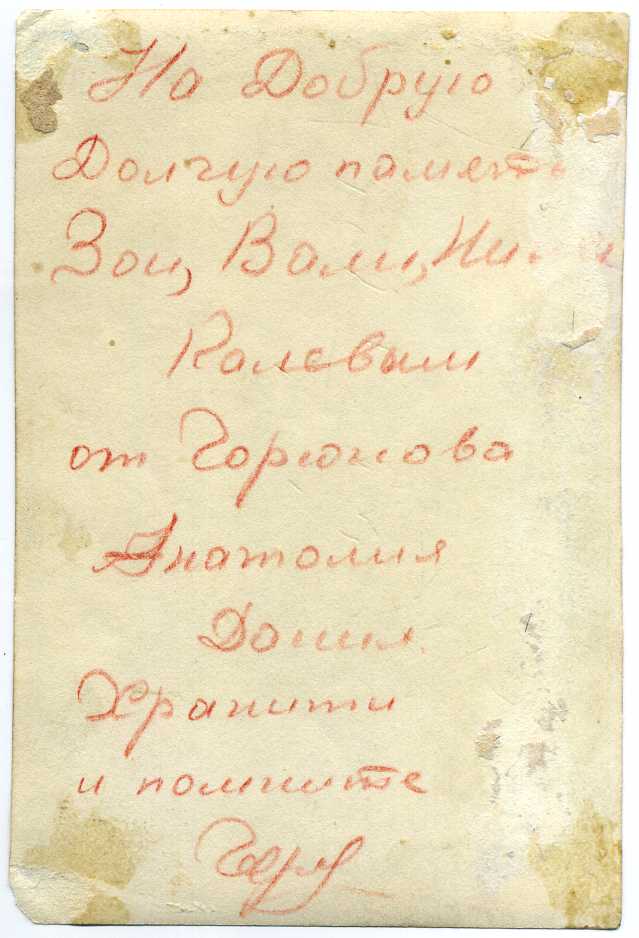 На Добрую
Долгую память
Зои, Вали, Нили
Калевым
от Горюнова
Анатолия
Хранити
и помните